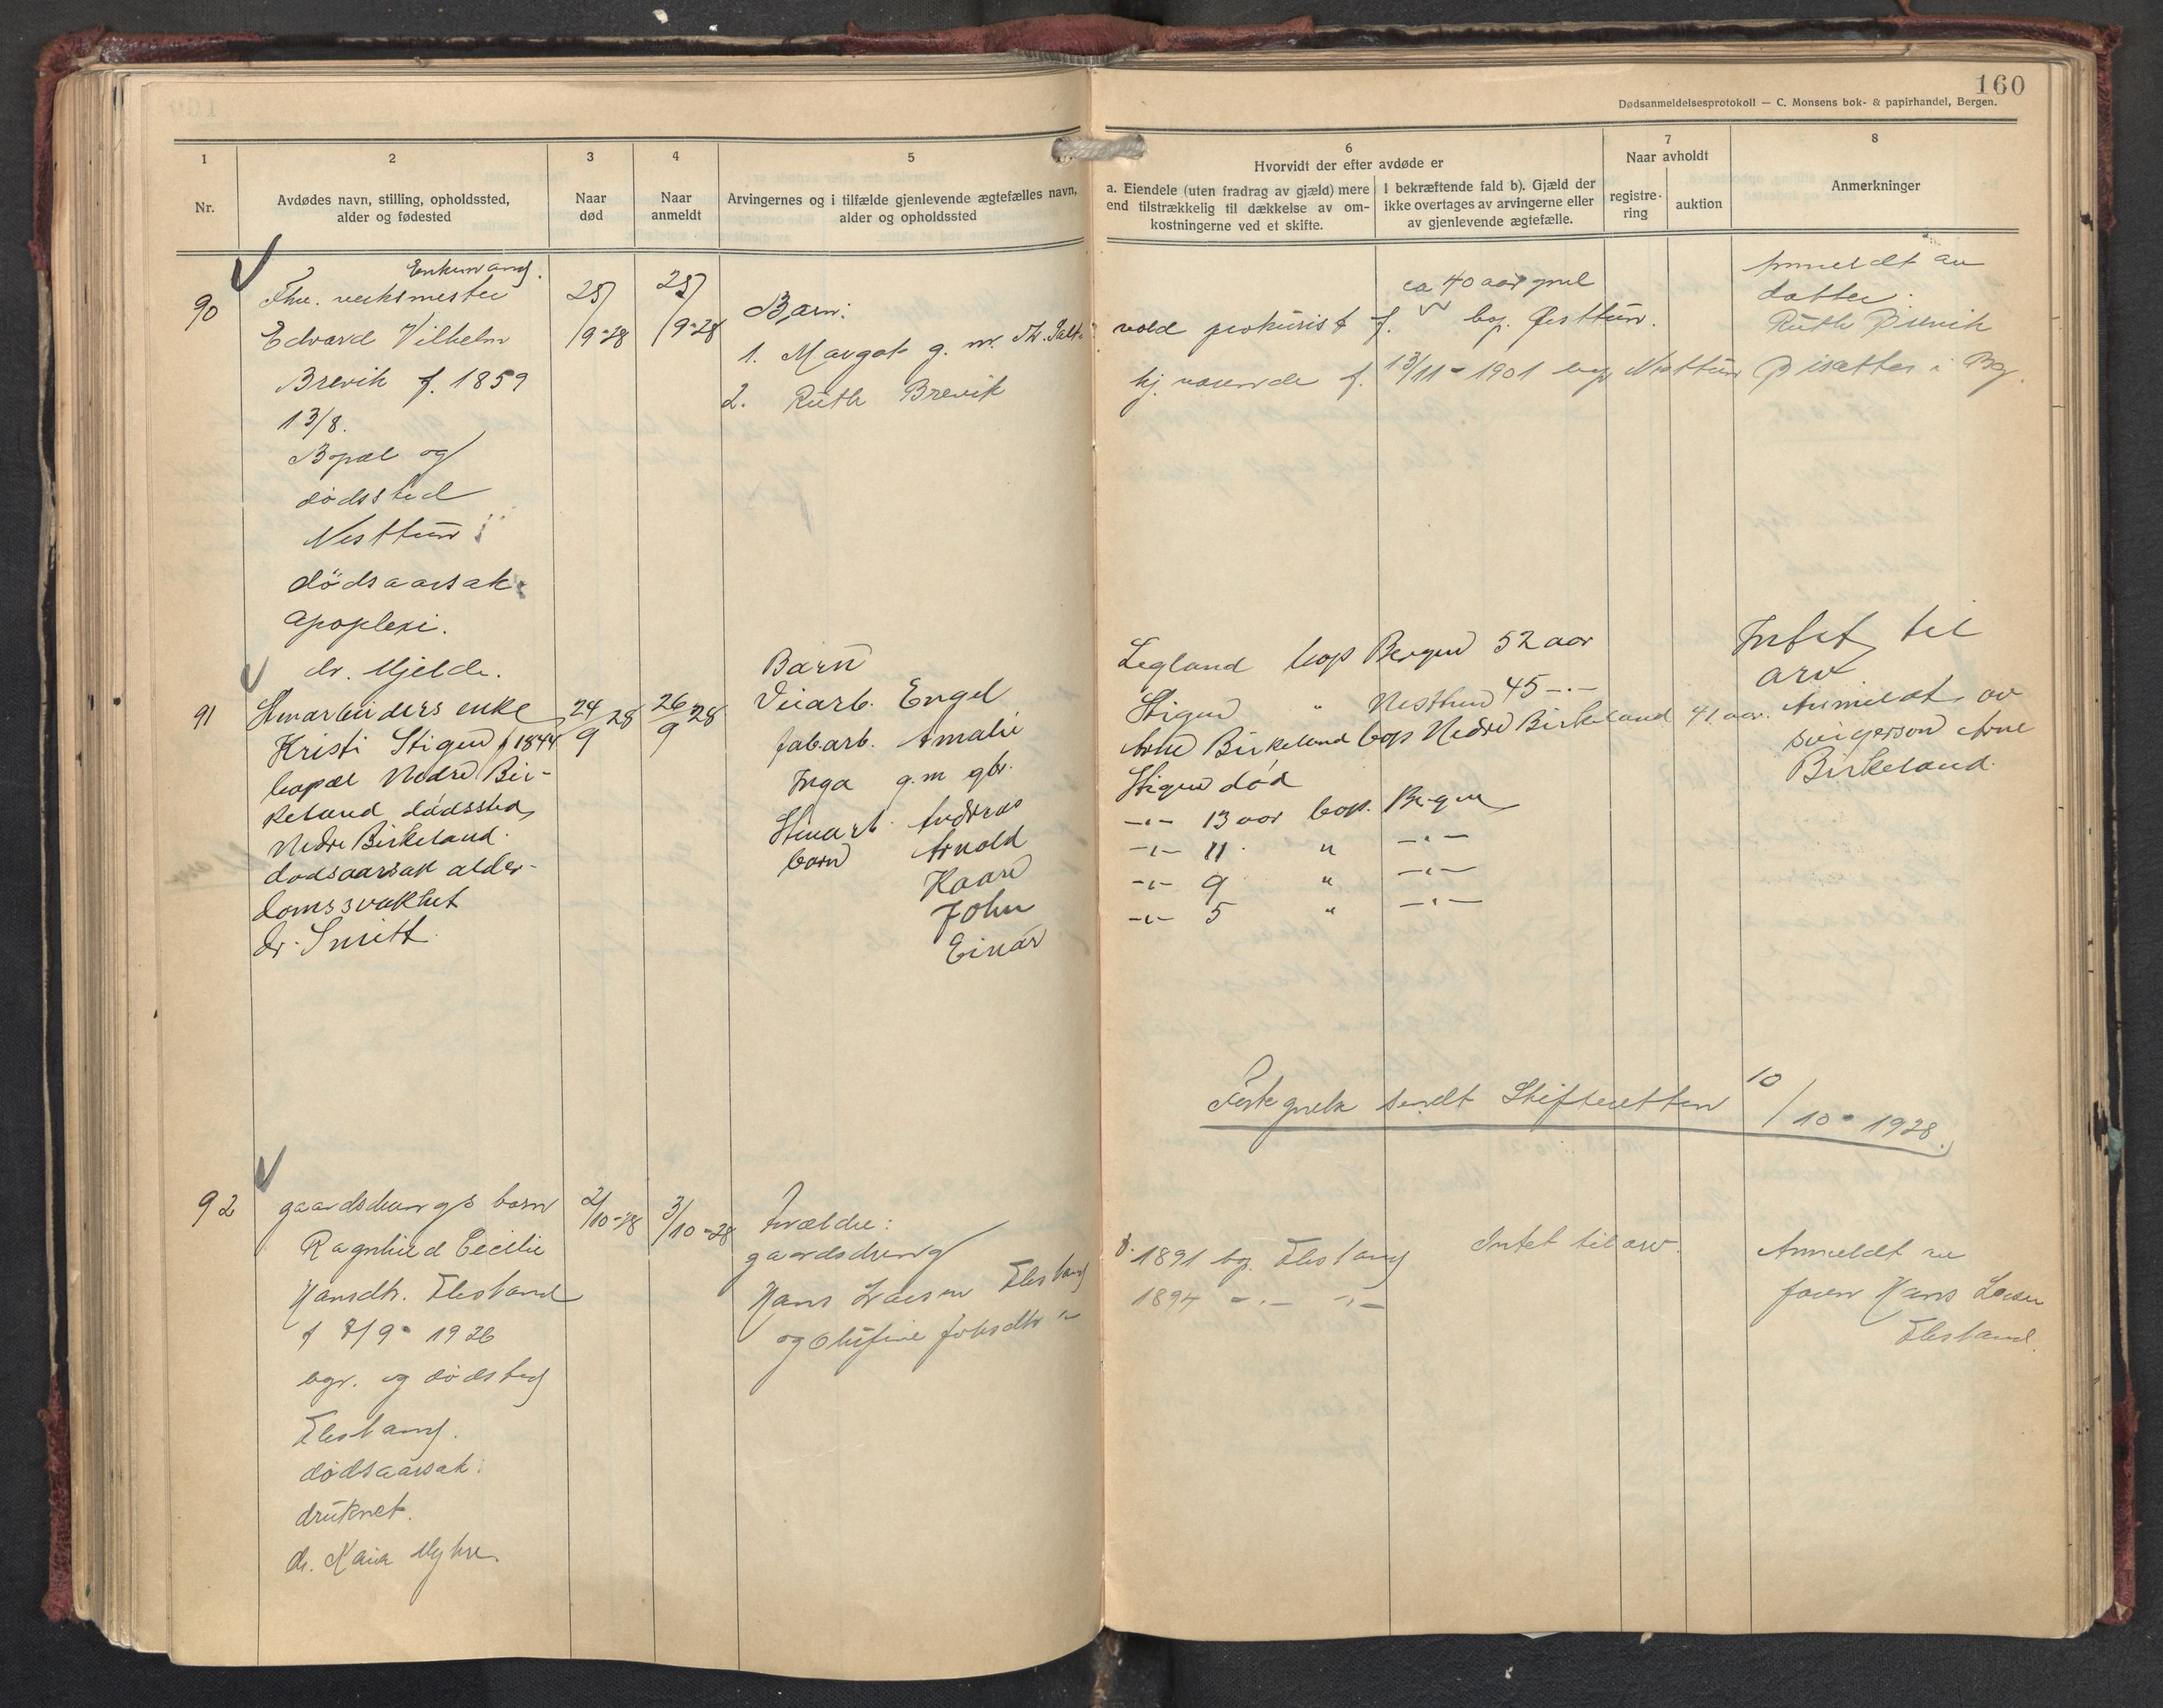 160
Dødsanmeldelsesprotokoll — C. Monsens bok- & papirhandel, Bergen.
1
Nr.
2
Avdødes navn, stilling, opholdssted,
alder og fødested
3
Naar
død
4
Naar
anmeldt
5
Arvingernes og i tilfælde gjenlevende ægtefælles navn,
alder og opholdssted
6
Hvorvidt der efter avdøde er
a. Eiendele (uten fradrag av gjæld) mere
end tilstrækkelig til dækkelse av om-
kostningerne ved et skifte.
I bekræftende fald b). Gjæld der
ikke overtages av arvingerne eller
av gjenlevende ægtefælle.
7
Naar avholdt
registre-
ring
auktion
8
Anmerkninger
90
Enkemand.
Fhv. verksmester
Edvard Vilhelm
Brevik f. 1859
13/8.
Bopæl og
dödssted
Nesttun
dödsaarsak:
apoplexi.
dr. Mjelde.
25/9-28
25/9-28
Barn:
1. Margot g. m.
2. Ruth Brevik
vold prokurist f. ca 40 aar gml
bop. Nesttun.
hj. værende f. 13/11-1901 bop Nesttun
Anmeldt av
datter:
Ruth Brevik
91
Stenarbeiders enke
Kristi Stigen f 1844
bopæl Nedre Bir-
keland dødssted
Nedre Birkeland.
dødsaarsak alder-
domssvakhet
dr. Smitt.
24/9 28
26/9 28
Barn
Veiarb. Engel
fabarb. Amalie
Inga g.m gbr.
Stenarb. Andreas
barn Arnold
Kaare
John
Einar
Legland bop Bergen 52 aar
Stigen " Nesttun 45 -"-
Arne Birkeland bop Nedre Birkeland 41 aar.
Stigen død
-"- 13 aar bop. Bergen
-"- 11 " -"-
-"- 9 " -"-
-"- 5 " -"-
Intet til
arv
Anmeldt av
svigersøn Arne
Birkeland.
sendt Skifteretten 10/10-1928.
92
gaardsdrengs barn
Ragnhild Cecilie
Hansdtr. Flesland
f 8/9-1926
bop. og dødssted
Flesland.
dødsaarsak:
druknet.
dr. Kaia Myhre.
2/10-28
3/10-28
Forældre:
gaardsdreng
Hans Larsen Flesland
og Olufine Johsdtr "
f. 1891 bop. Flesland
1894 -"- -"-
Intet til arv.
Anmeldt av
faren Hans Larsen
Flesland.